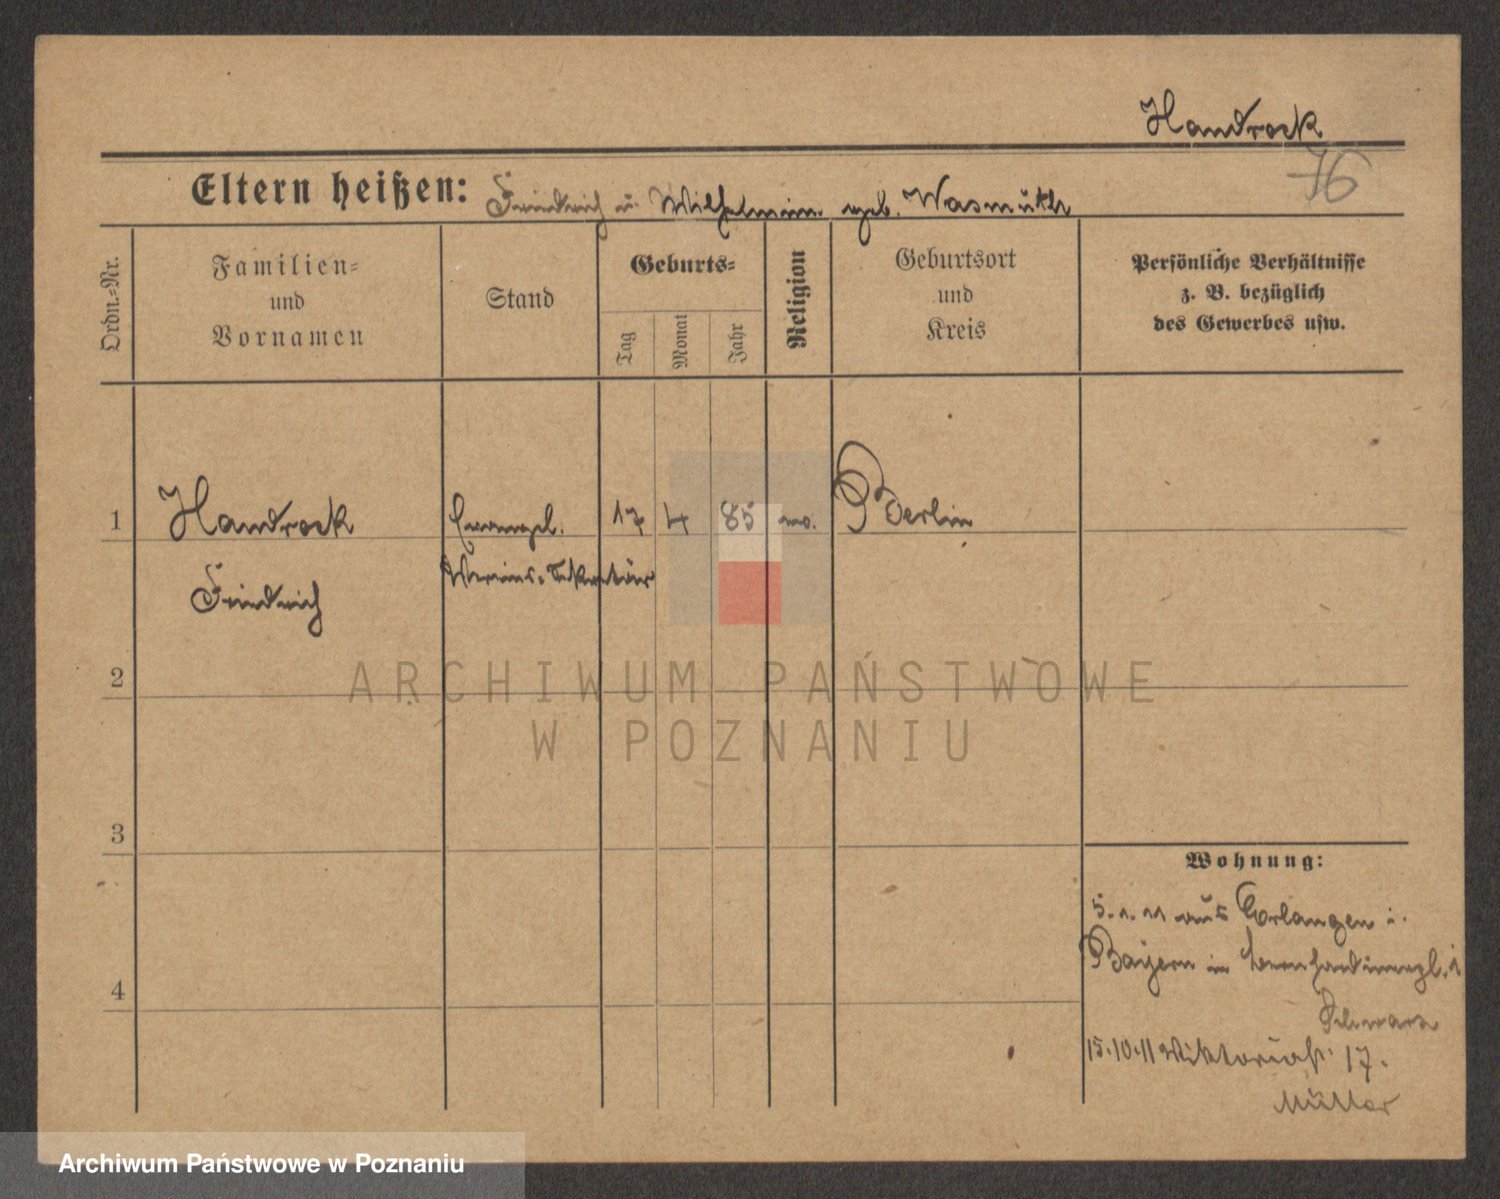 Handrock
76
Eltern heißen: Friedrich u. Wilhelmine geb. Wasmuth
Ordn.-Nr.
Familien- und Vornamen
Stand
Geburts-
Tag
Monat
Jahr
Religion
Geburtsort und Kreis
Persönliche Verhältnisse
z. B. bezüglich
des Gewerbes usw.
1 Handrock evangel. 17 4 85 ev. Berlin
Friedrich Vereins-Sekretär
2
ARCHIWUM PAŃSTWOWE
W POZNANIU
3
Wohnung:
5.1.11 aus Erlangen i.
Bayern in Bernhardinerpl. 1
Schwarz
4
15.10.11 Viktoriast. 17.
Müller
Archiwum Państwowe w Poznaniu